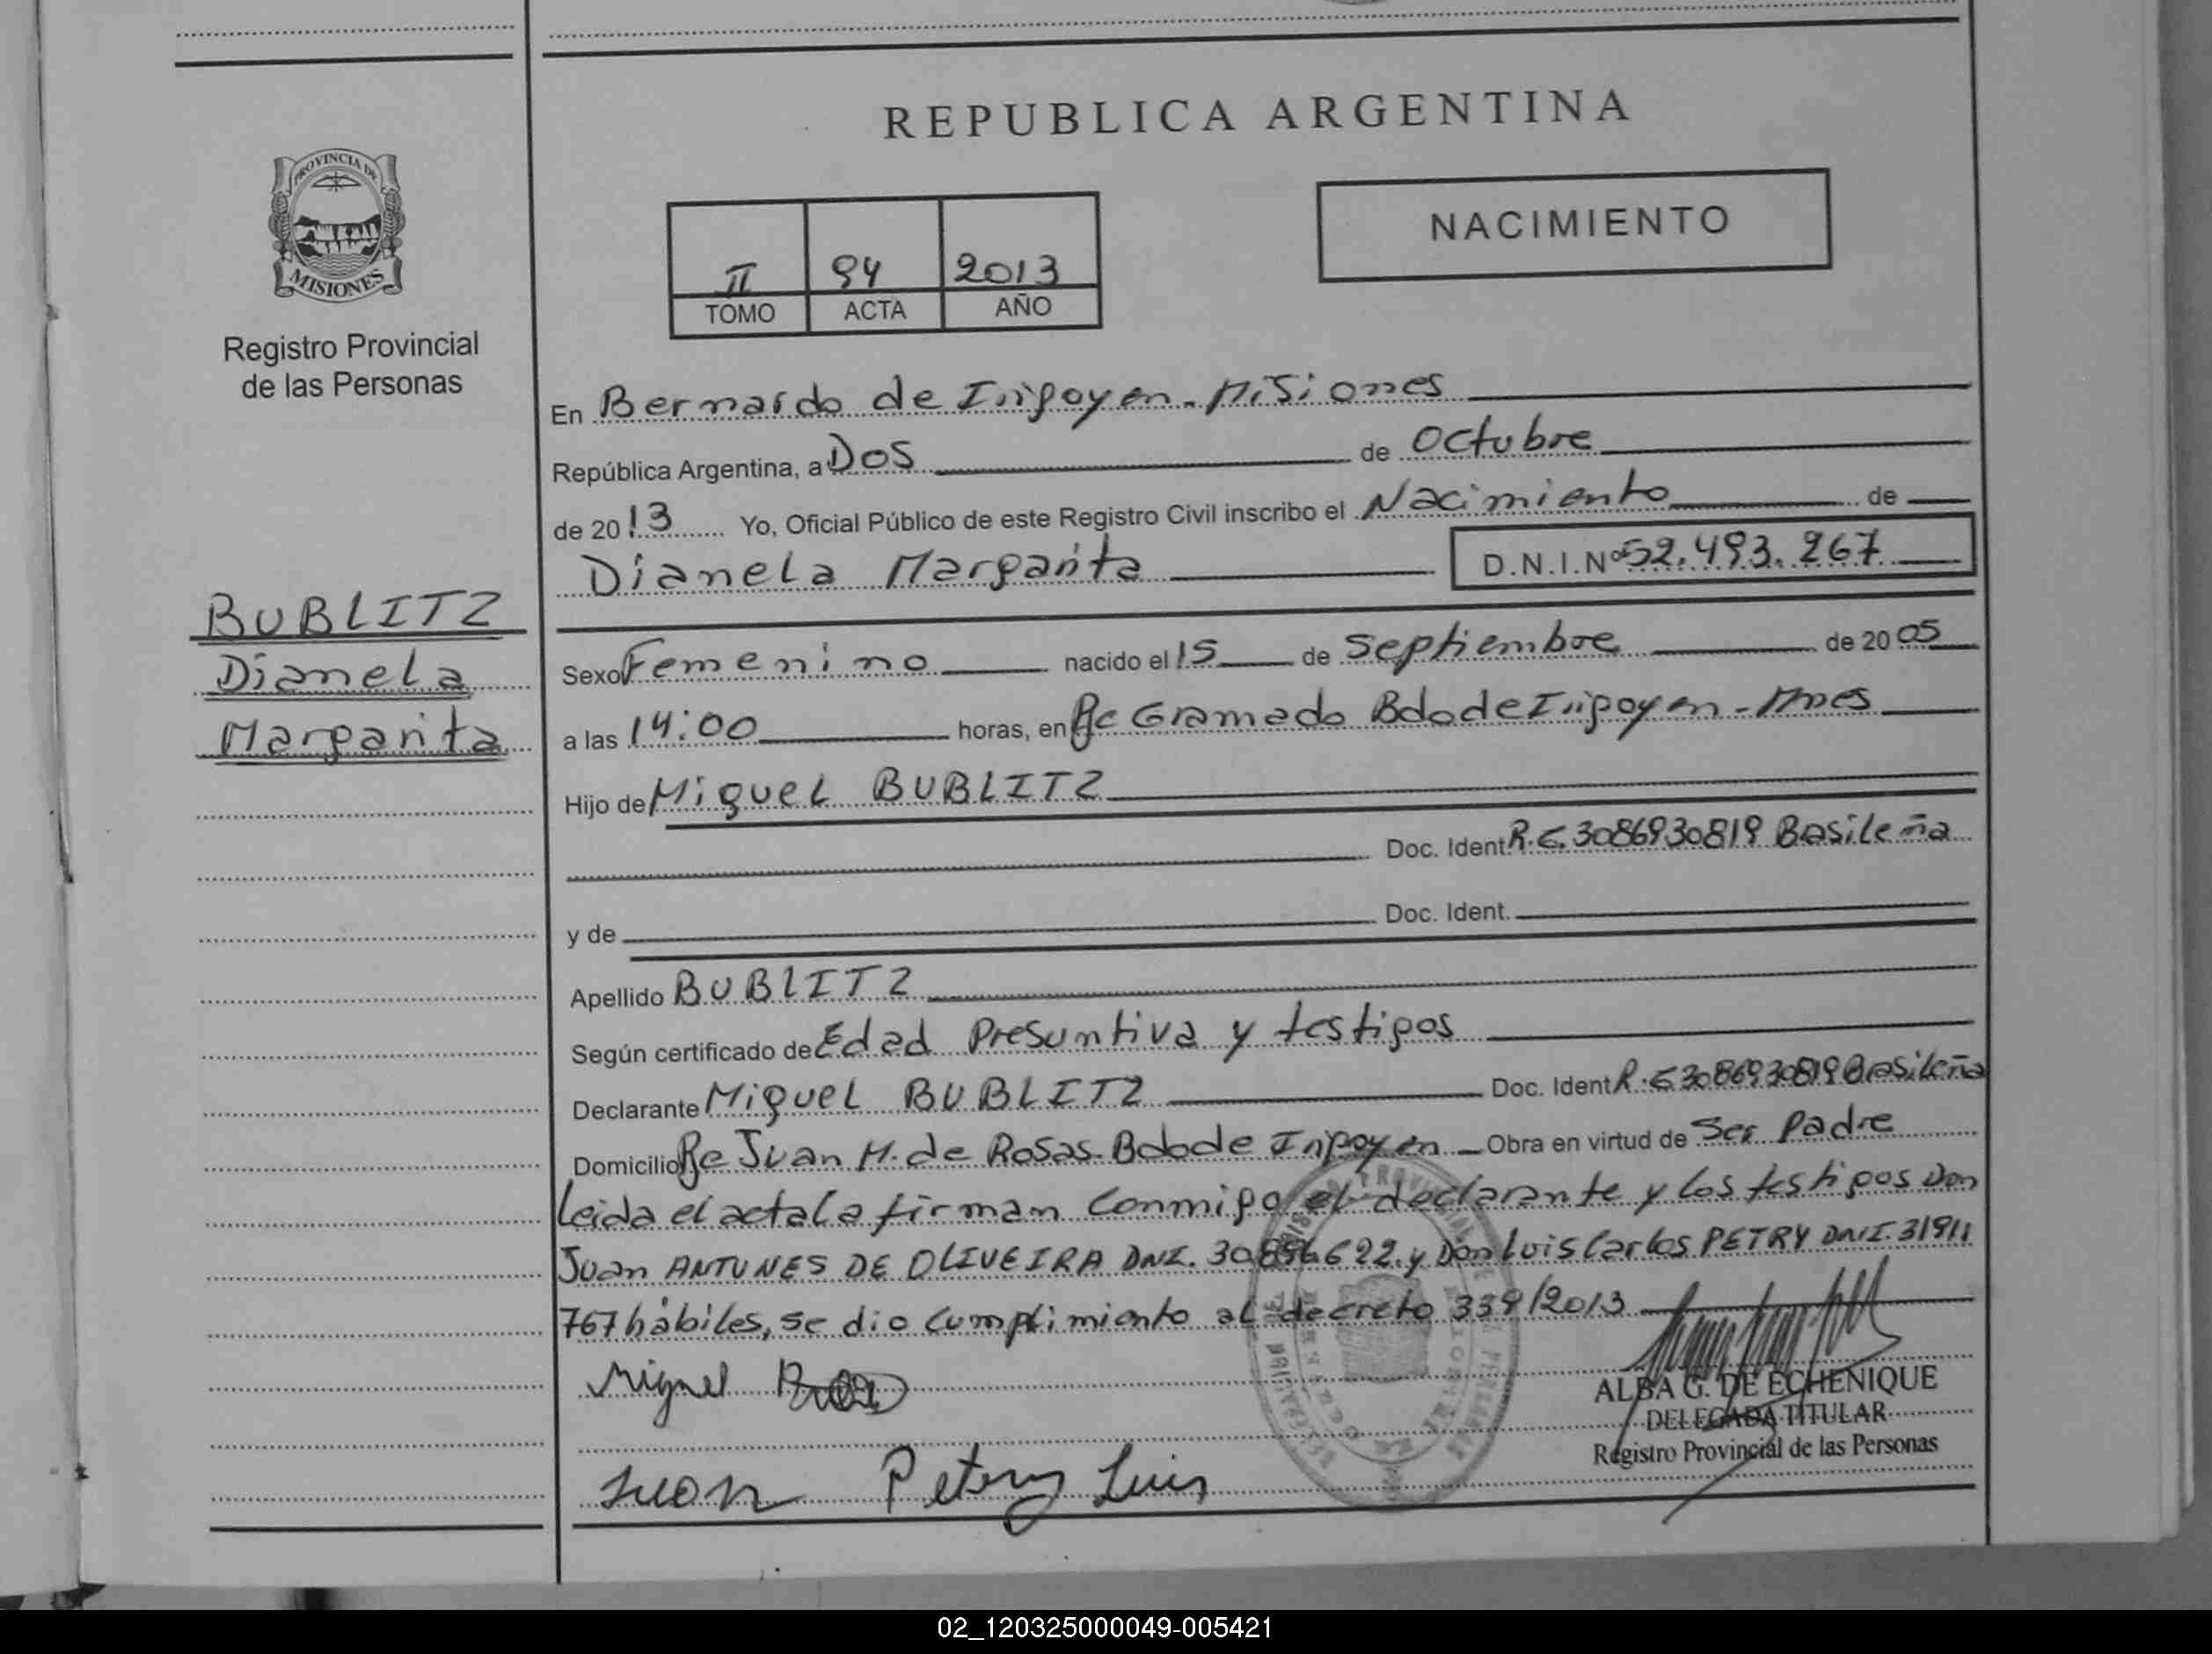 REPUBLICA ARGENTINA
PROVINCIA DE
MISIONES
Registro Provincial
de las Personas
NACIMIENTO
II 94 2013
TOMO ACTA AÑO
En Bernardo de Irigoyen - Misiones
República Argentina, a Dos de Octubre
de 2013 Yo, Oficial Público de este Registro Civil inscribo el Nacimiento de
Dianela Margarita D.N.I.Nº 52.493.267
BUBLITZ
Dianela
Margarita
Sexo Femenino nacido el 15 de Septiembre de 2005
a las 14:00 horas, en Pje Gramado Bdo de Irigoyen - Mnes
Hijo de Miguel BUBLITZ
Doc. Ident. R.G. 3086930819 Basileña
y de Doc. Ident.
Apellido BUBLITZ
Según certificado de Edad Presuntiva y testigos
Declarante Miguel BUBLITZ Doc. Ident. R.G 3086930819 Basileña
Domicilio Pje Juan M. de Rosas - Bdo de Irigoyen Obra en virtud de Ser Padre
Leida el acta la firman conmigo el declarante y los testigos Don
Juan ANTUNES DE OLIVEIRA DNI. 30896622 y Don Luis Carlos PETRY DNI. 31911
767 hábiles, se dio cumplimiento al decreto 339/2013
Miguel
ALBA G. DE ECHENIQUE
DELEGADA TITULAR
Registro Provincial de las Personas
Juan Petry Luis
02_120325000049-005421